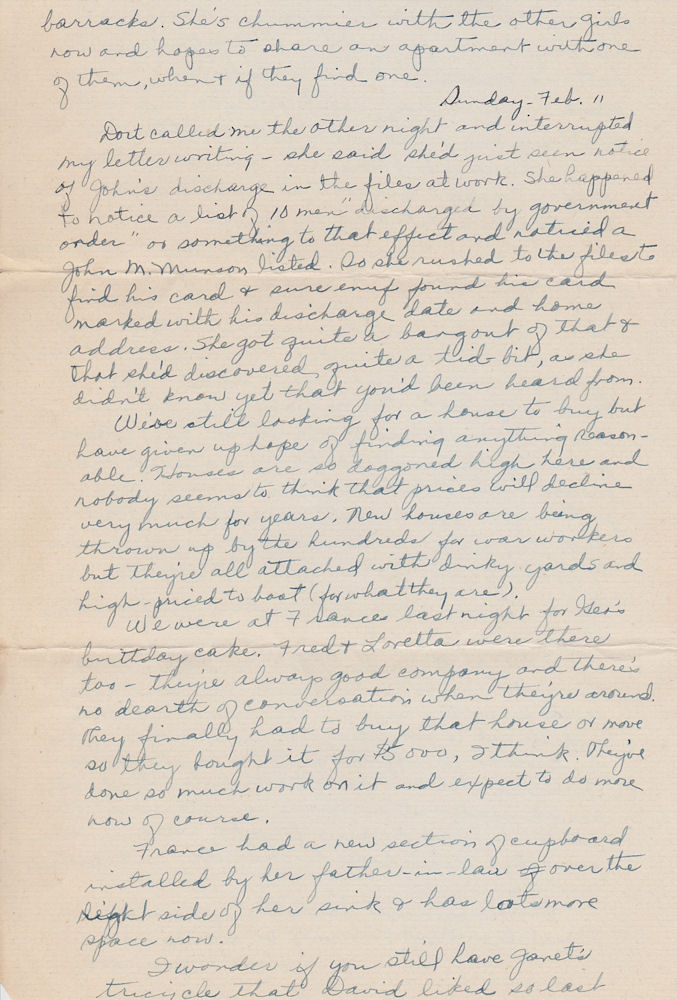 barracks. She's chummier with the other girls
now and hopes to share an apartment with one
of them, when + if they find one.
Sunday - Feb. 11
Dort called me the other night and interrupted
my letter writing - she said she'd just seen notice
of John's discharge in the files at work. She happened
to notice a list of 10 men "discharged by government
order" or something to that effect and noticed a
John M. Munson listed. So she rushed to the files to
find his card & sure enuf found his card
marked with his discharge date and home
address. She got quite a bang out of that &
that she'd discovered quite a tid-bit, as she
didn't know yet that you'd been heard from.
We're still looking for a house to buy but
have given up hope of finding anything reason-
able. Houses are so doggoned high here and
nobody seems to think that prices will decline
very much for years. New houses are being
thrown up by the hundreds for war workers
but they're all attached with dinky yards and
high-priced to boot (for what they are).
We were at Frances last night for Ger's
birthday cake. Fred & Loretta were there
too - they're always good company and there's
no dearth of conversation when they're around.
They finally had to buy that house or move
so they bought it for $5000, I think. They've
done so much work on it and expect to do more
now of course.
France had a new section of cupboard
installed by her father-in-law over the
right side of her sink & has lots more
space now.
I wonder if you still have Janet's
tricycle that David liked so last